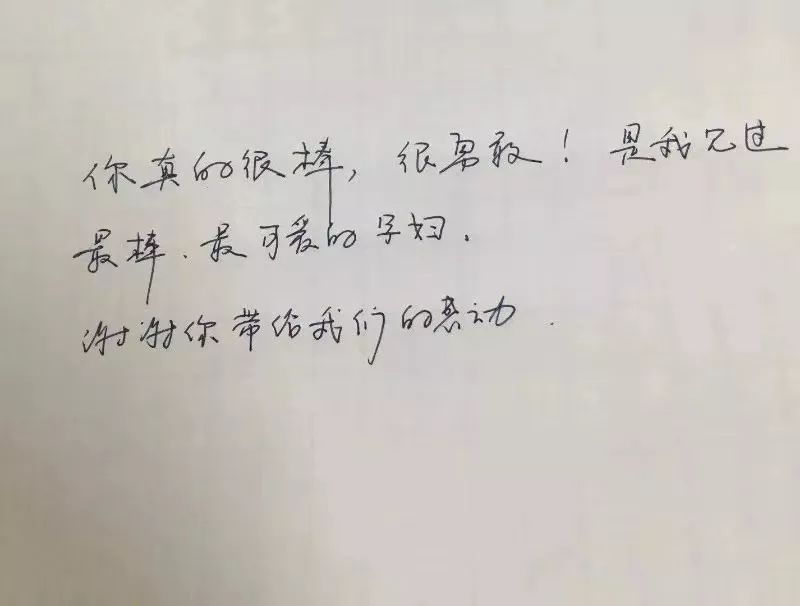 你真的很棒，很勇敢！是我见过
最棒、最可爱的孕妇.
谢谢你带给我们的感动.